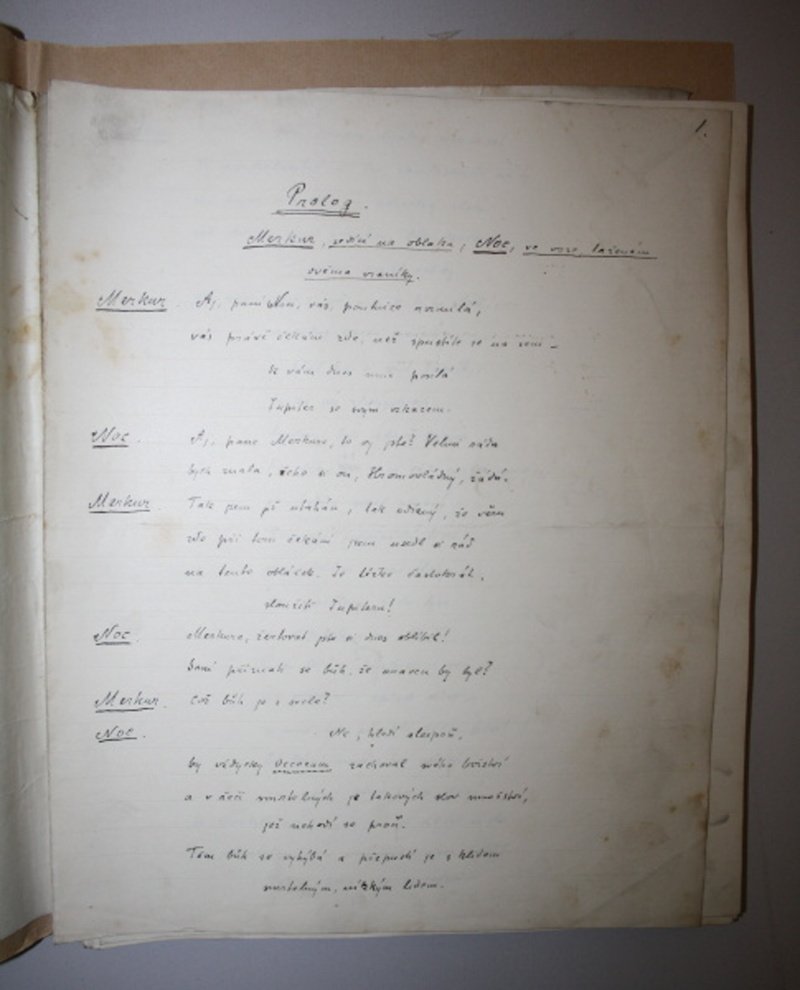 1.
Prolog.
Merkur, sedící na oblaku, Noc, ve voze, taženém
dvěma vraníky.
Merkur. Aj, paní Noci, vás, poutnice
vás právě čekám zde, než spustíte se na zemi –
k vám dnes mne posílá
Jupiter se svým vzkazem.
Noc. Aj, pane Merkure, to vy jste? Velmi ráda
bych znala, čeho si on, Hromovládný, žádá.
Merkur. Tak jsem již utahán, tak že věru
zde při tom čekání jsem used si rád
na tento obláček. Je těžko
sloužiti Jupiteru!
Noc. Merkure, žertovat jste si dnes oblíbil!
Sami přiznati se bůh, že unaven by byl?
Merkur. Což bůh je z ocele?
Noc. Ne, hledí alespoň,
by vždycky decorum zachoval svého božství
a v řeči smrtelných je takových slov množství,
jež nehodí se proň.
Těm bůh se vyhýbá a přepustí je s klidem
smrtelným, nízkým lidem.